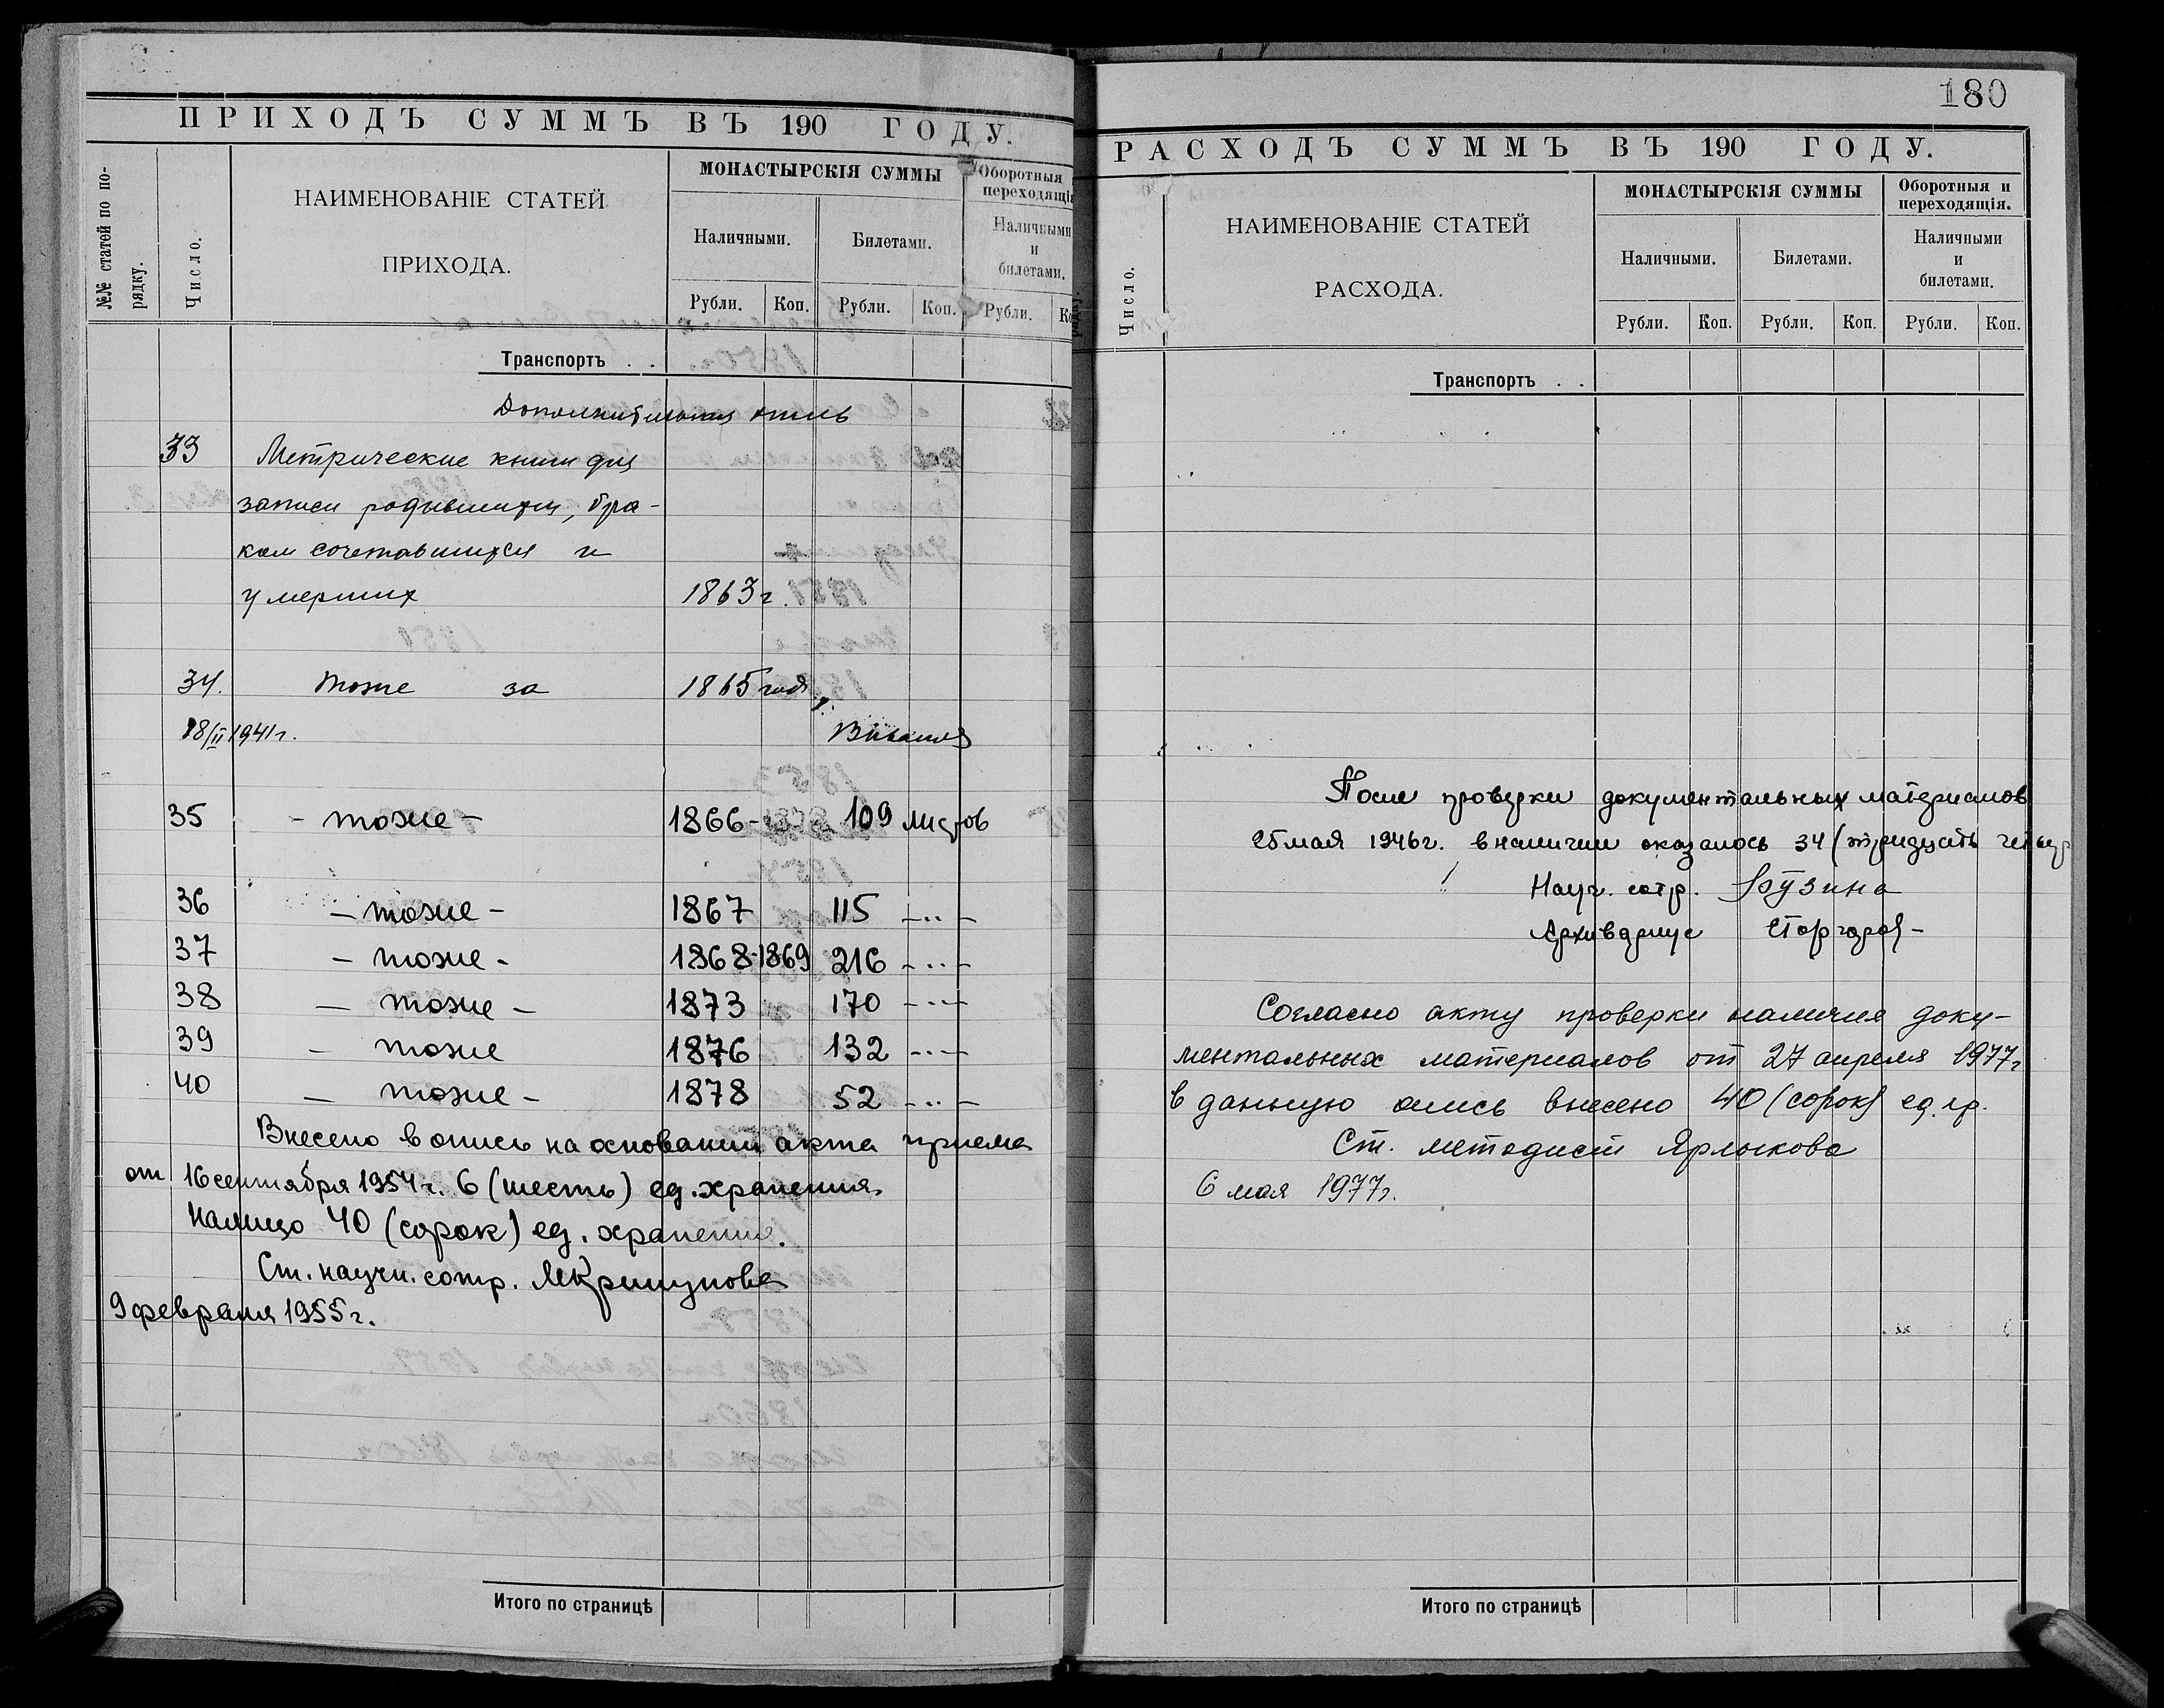 ПРИХОДЪ СУММЪ ВЪ 190 ГОДУ.
№№ статей по по-
рядку.
Число.
НАИМЕНОВАНІЕ СТАТЕЙ
ПРИХОДА.
МОНАСТЫРСКІЯ СУММЫ
Оборотныя
переходящія
Наличными.
Билетами.
Наличными
и
билетами.
Рубли. Коп. Рубли. Коп. Рубли.
Транспортъ . .
Дополнительная опись
33 Метрические книги для
записи родившихся, бра-
ком сочетавшихся и
умерших 1863 г.
34. тоже за 1865 год
18/II 1941 г.
35 - тоже - 1866 - 109 листов
36 - тоже - 1867 115 -..-
37 - тоже - 1868-1869 216 -..-
38 - тоже - 1873 170 -..-
39 - тоже 1876 132 -..-
40 - тоже - 1878 52 -..-
Внесено в опись на основании акта приема
от 16 сентября 1954 г. 6 (шесть) ед. хранения.
Налицо 40 (сорок) ед. хранения.
Ст. научн. сотр.
9 февраля 1955 г.
Итого по страницѣ
180
РАСХОДЪ СУММЪ ВЪ 190 ГОДУ.
Число.
НАИМЕНОВАНІЕ СТАТЕЙ
РАСХОДА.
МОНАСТЫРСКІЯ СУММЫ
Оборотныя и
переходящія.
Наличными.
Билетами.
Наличными
и
билетами.
Рубли. Коп. Рубли. Коп. Рубли. Коп.
Транспортъ . .
После проверки документальных материалов
25 мая 1946 г. в наличии оказалось 34 (тридцать четыр
Науч. сотр. Бузина
Архивариус
Согласно акту проверки наличия доку-
ментальных материалов от 27 апреля 1977 г
в данную опись внесено 40 (сорок) ед. хр.
Ст. методист Ярлыкова
6 мая 1977 г.
Итого по страницѣ